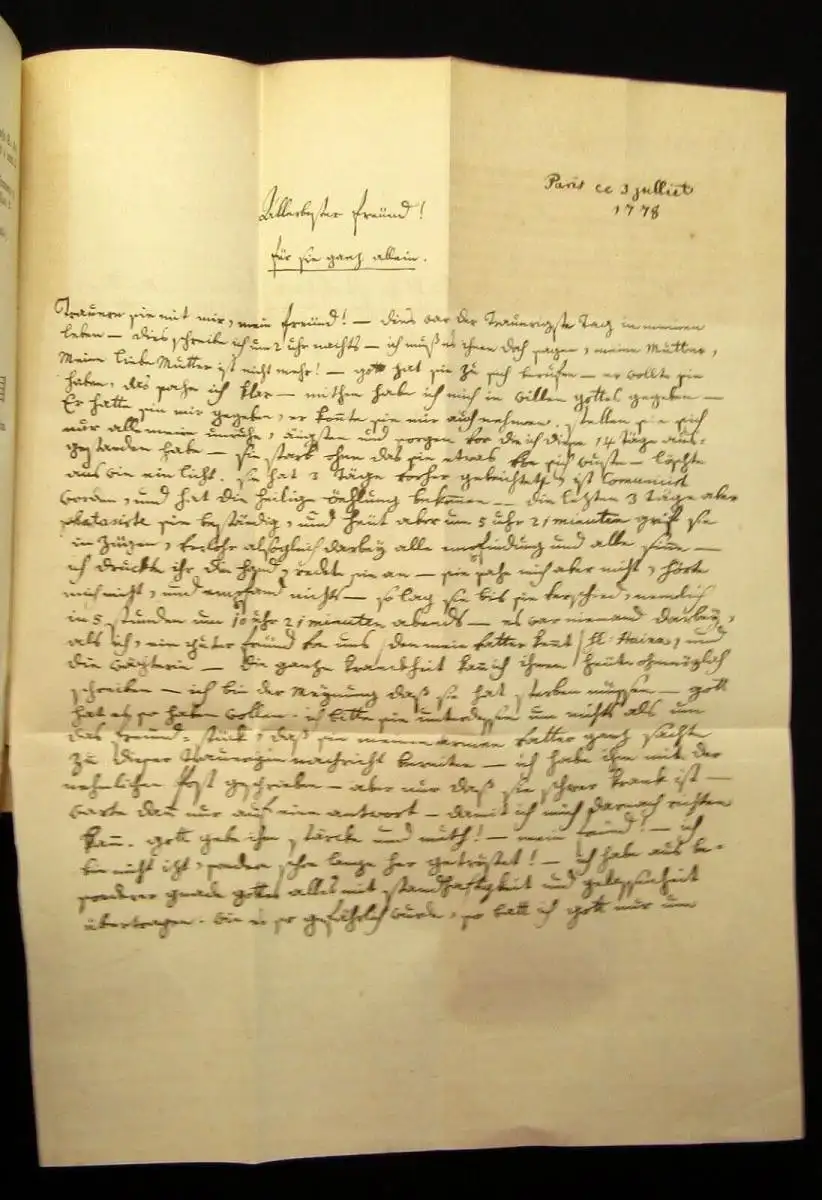 Paris ce 3 julliet
1778
Allerbester freünd!
für sie ganz allein.
Trauern sie mit mir, mein freünd! — dies war der Trauerigste Tag in meinen
leben — dies schreibe ich um 2 uhr nachts — ich muß es ihnen doch sagen, meine Mutter,
Meine liebe Mutter ist nicht mehr! — gott hat sie zu sich berufen — er wollte sie
haben, das sahe ich klar — mithin habe ich mich in willen gottes gegeben —
Er hatte sie mir gegeben, er konnte sie mir auch nehmen. stellen sie sich
nur alle meine unruhe, ängsten und sorgen vor die ich diese 14 täge aus-
gestanden habe — sie starb ohne das sie etwas von sich wuste — löschte
aus wie ein licht. sie hat 3 täge vorher gebeichtet, ist Comunicirt
worden, und hat die heilige öehlung bekommen — die lezten 3 täge aber
phatasirte sie beständig, und heüt aber um 5 uhr 21 minuten grif sie
in Zügen, verlohr alsogleich darbey alle empfindung und alle sinne —
ich druckte ihr die hand, redete sie an — sie sahe mich aber nicht, hörte
mich nicht, und empfand nichts — so lag sie bis sie verschied, nemlich
in 5 stunden um 10 uhr 21 minuten abends — es war niemand darbey,
als ich, ein guter freünd von uns /den mein vatter kennt/ H: Haina, und
die wächterin — die ganze kranckheit kan ich ihnen heüte ohnmöglich
schreiben — ich bin der Meynung daß sie hat sterben müssen — gott
hat es so haben wollen. ich bitte sie unterdessen um nichts als um
das freünd-stück, daß sie meinen armen vatter ganz sachte
zu dieser trauerigen nachricht bereiten — ich habe ihm mit der
nehmlichen Post geschrieben — aber nur daß sie schwer krank ist —
warte dann nur auf eine antwort — damit ich mich darnach richten
kann. gott gebe ihm stärcke und muth! — mein freünd! — ich
bin nicht izt, sondern schon lange her getröstet! — ich habe aus be-
sonderer gnade gottes alles mit standhaftigkeit und gelassenheit
übertragen. wie es so gefährlich wurde, so batt ich gott nur um